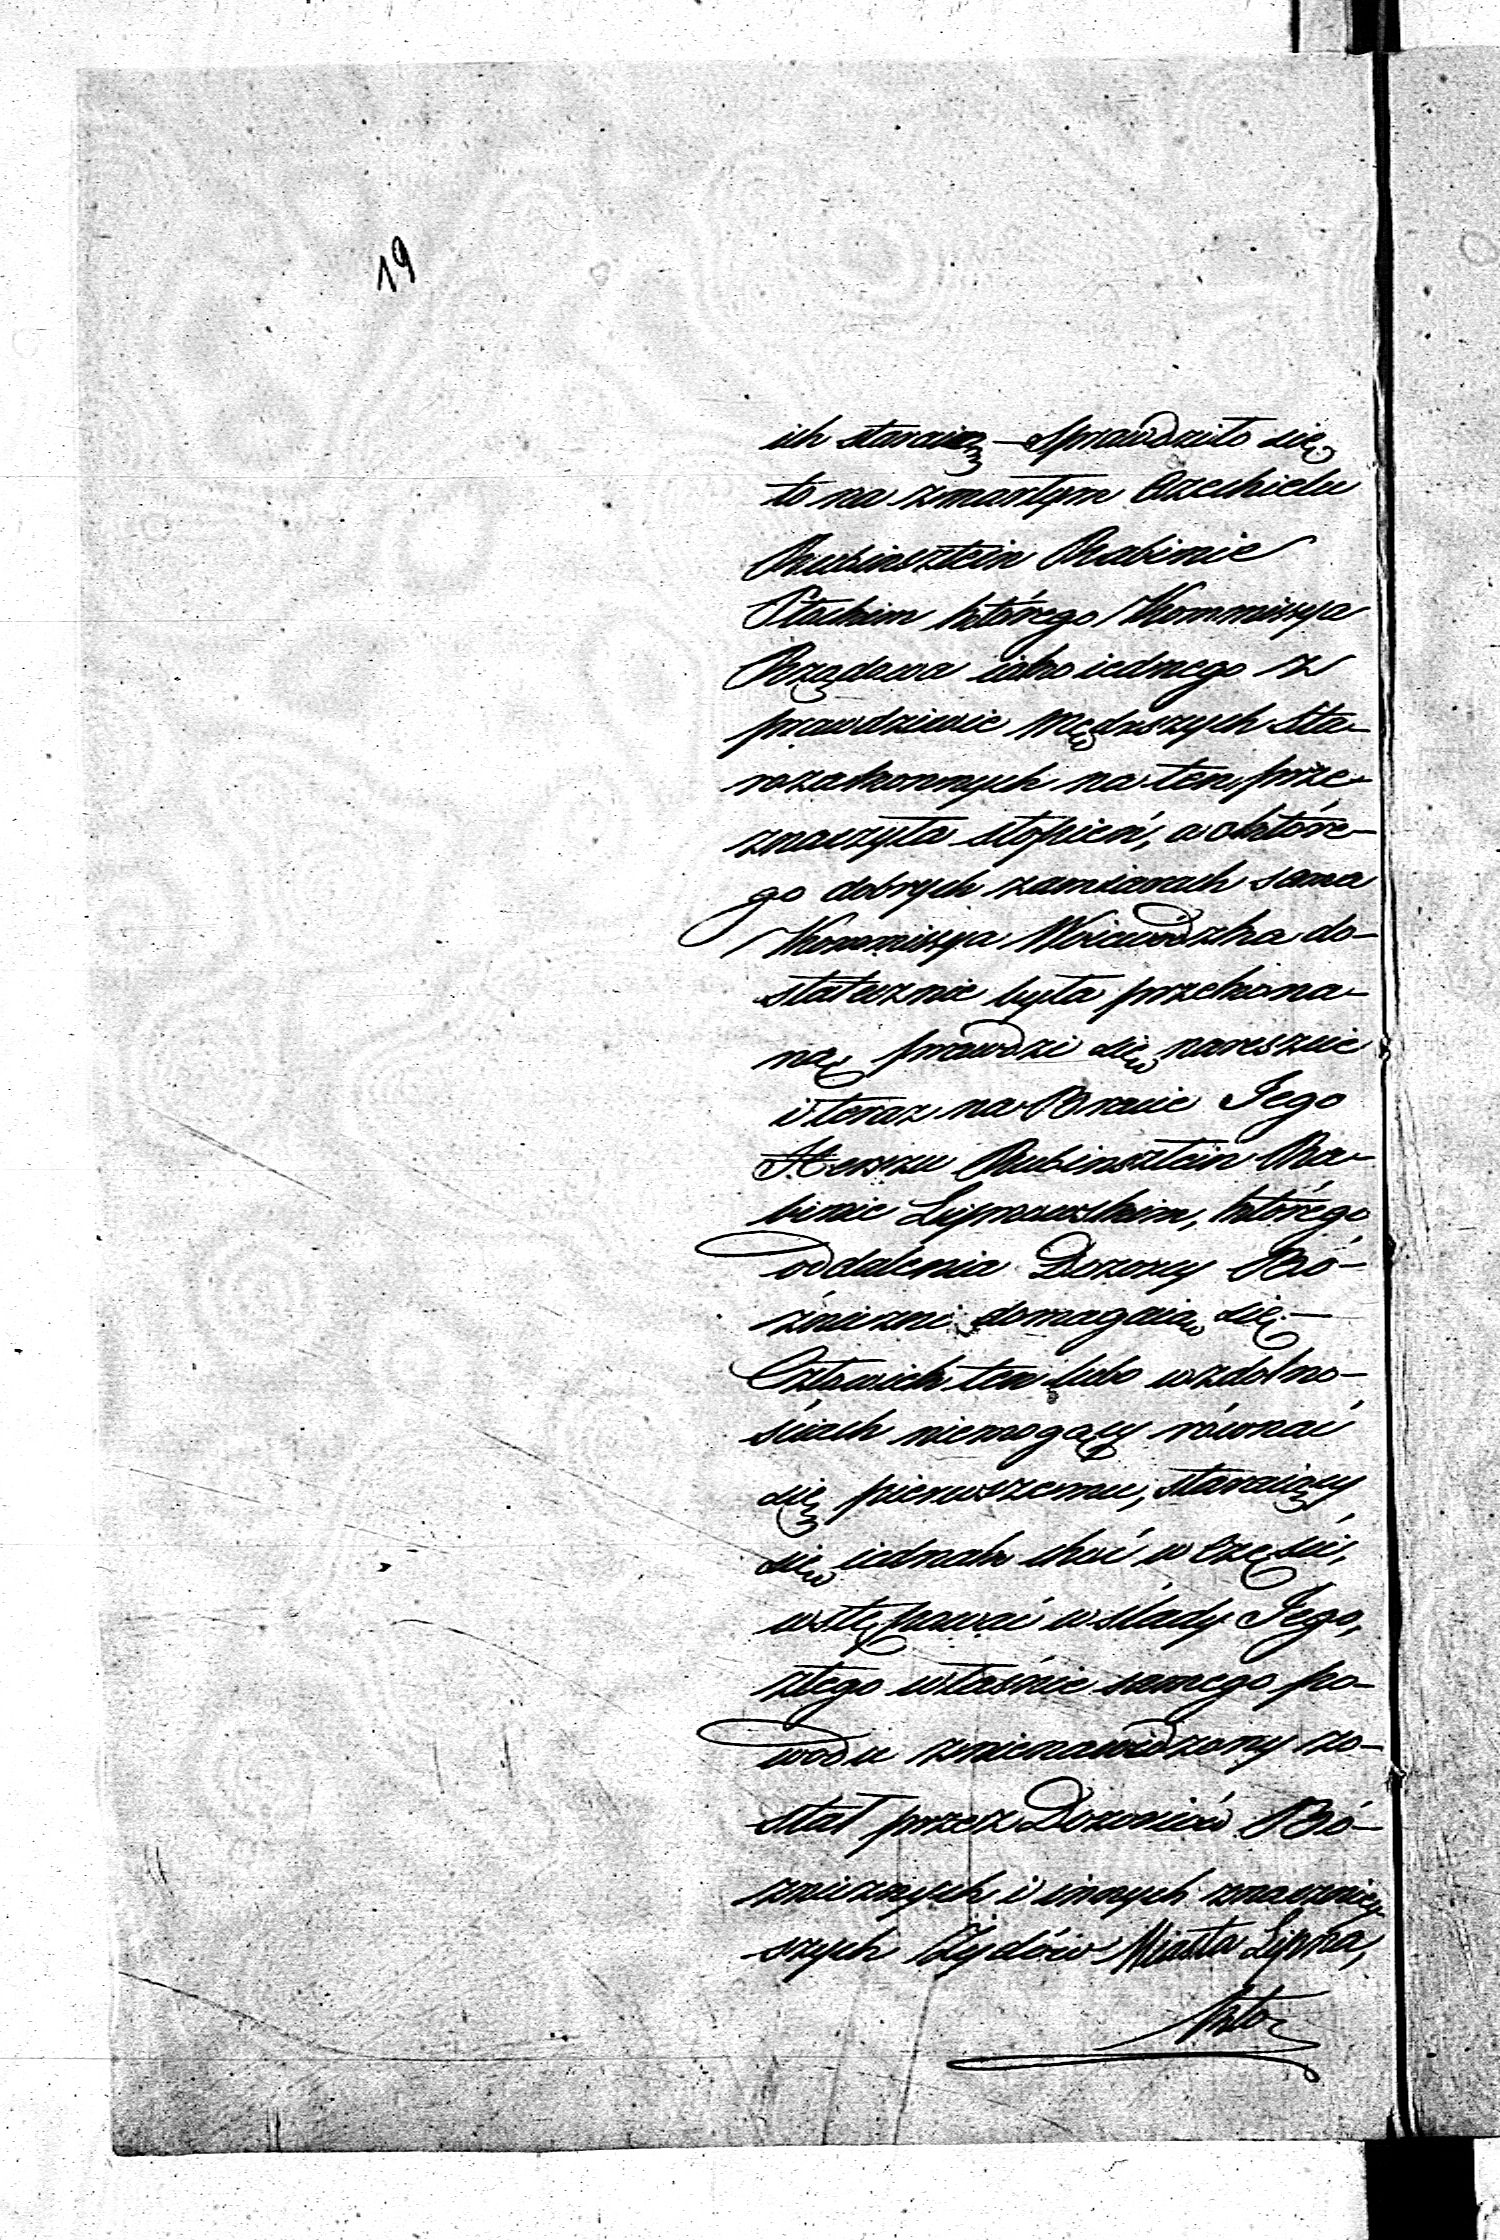 19
ich starcia — Sprawdziło się
to na zmarłym Ezechielu
Rubinsztein Rabinie
Płockim którego Kommissya
Rządowa iako iednego z
prawdziwie Mędrszych Sta-
rozakonnych na ten prze-
znaczyła stopień, a o które-
go dobrych zamiarach sama
Kommissya Woiewódzka do-
statecznie była przekona-
ną prawdzi się nareszcie
i teraz na Bracie Jego
Herszu Rubinsztein Ra-
binie Lipnowskim, którego
oddalenia Dozory Bó-
źnicze domagaią się. —
Człowiek ten lubo w zdolno-
ściach niemogący równać
się pierwszemu, staraiący
się iednak choć w części,
wstępować w ślady Jego,
z tego właśnie samego po-
wodu znienawidzony zo-
stał przez Dozorców Bó-
źniczych i innych znaczniey-
szych Żydów Miasta Lipna,
Kto